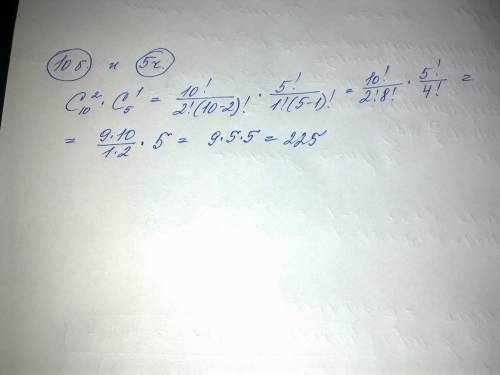 10б и 5ч.
C₁₀² · C₅¹ = 10! / 2!(10-2)! · 5! / 1!(5-1)! = 10! / 2!8! · 5! / 4! =
= 9·10 / 1·2 · 5 = 9·5·5 = 225